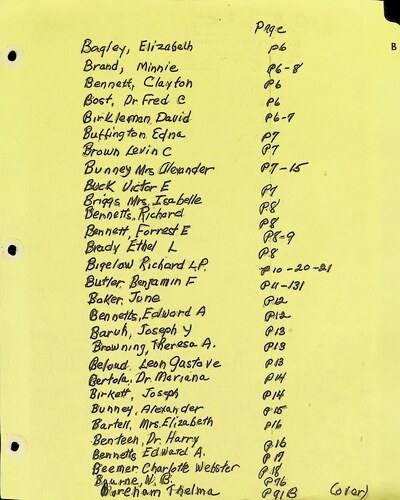 Page
B
Bagley, Elizabeth P6
Brand, Minnie P6-8
Bennett, Clayton P6
Bost, Dr Fred C P6
Birkleman, David P6-7
Buffington, Edna P7
Brown Levin C P7
Bunney Mrs. Alexander P7-15
Buck Victor E P7
Briggs, Mrs. Isabelle P8
Bennetts, Richard P8
Bennett, Forrest E P8-9
Brady Ethel L P8
Bigelow Richard L.P. P10-20-21
Butler, Benjamin F P11-131
Baker, June P12
Bennetts, Edward A P12
Baruh, Joseph Y P13
Browning, Theresa A. P13
Beloud, Leon Gastave P13
Bertola, Dr. Mariana P14
Birkett, Joseph P14
Bunney, Alexander P15
Bartell, Mrs. Elizabeth P16
Benteen, Dr. Harry P16
Bennetts Edward A. P17
Beemer Charlotte Webster P18
Bourne, W.B. P76
Boreham Thelma P91B (over)